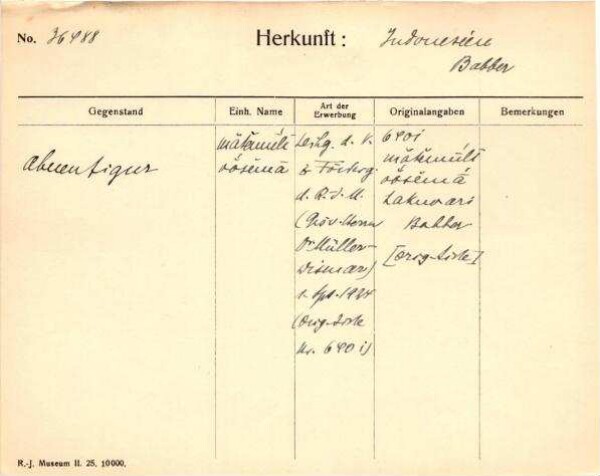 No. 36488
Herkunft: Indonesien
Babber
Gegenstand
Einh. Name
Art der Erwerbung
Originalangaben
Bemerkungen
Ahnenfigur
mätämúli
öösëmä
Leihg. d. V.
z. Förderg.
d. R. J. M.
(Slg. Herrn
Dr Müller-
Wismar)
1. Spt. 1924
(Orig. Liste
Nr. 640 i)
640 i
mätämúlti
öösëmä
Lakuvari
Babber
[Orig-Liste]
R.-J. Museum II. 25. 10000.